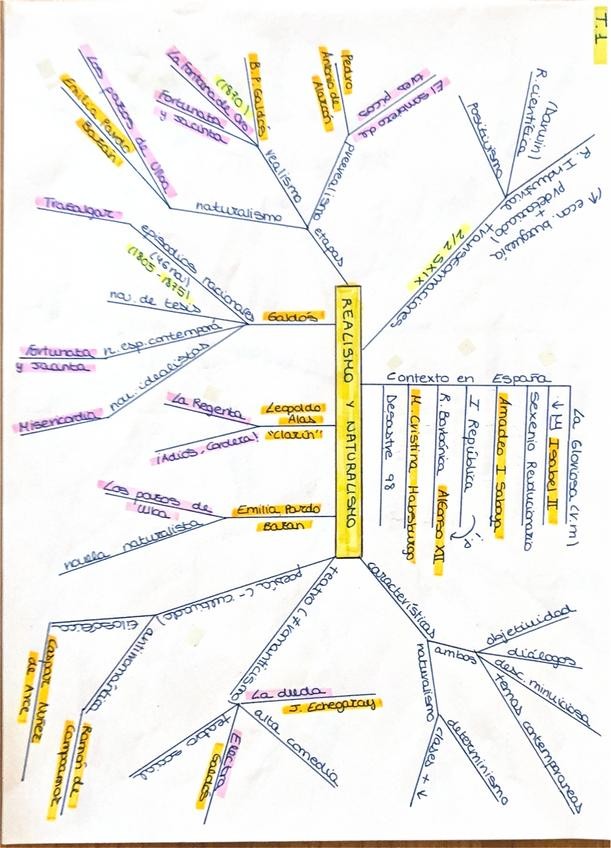 T.1
REALISMO Y NATURALISMO
transformaciones
2/2 S XIX
R. Industrial
(↑ econ. burguesía
+
proletariado)
R. científica
(Darwin)
positivismo
Contexto en España
La Gloriosa (r.m)
↓ M Isabel II
Sexenio Revolucionario
Amadeo I Saboya
I República
R. Borbónica Alfonso XII
M. Cristina Habsburgo
Desastre 98
características
ambos
objetividad
diálogos
desc. minuciosa
temas contemporaneos
naturalismo
determinismo
clases + ↓
teatro (≠ romanticismo
La duda
J. Echegaray
alta comedia
Electra
Galdós
teatro social
poesía (- cultivado)
antirromántica
Ramón de
Campoamor
filosófica
Gaspar Núñez
de Arce
Emilia Pardo
Bazán
Los pazos de
Ulloa
novela naturalista
Leopoldo
Alas
"Clarín"
La Regenta
¡Adiós, Cordera!
Galdós
episodios nacionales
(46 no.)
(1805-1875)
Trafalgar
nov. de tesis
n. esp. contempora
Fortunata
y Jacinta
nov. idealistas
Misericordia
etapas
prerrealismo
Pedro
Antonio de
Alarcón
El sombrero de
tres picos
realismo
B. P. Galdós
La Fontana de Oro
(1870)
Fortunata
y Jacinta
naturalismo
Los pazos de Ulloa
Emilia Pardo
Bazán